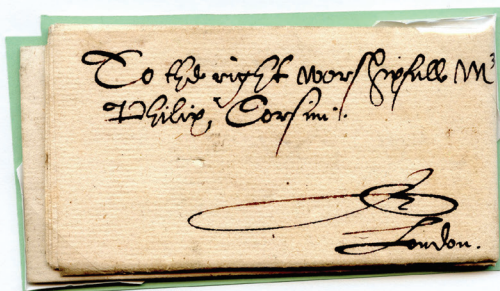 To the right worshipfull Mr
Philip, Corsini.
London.